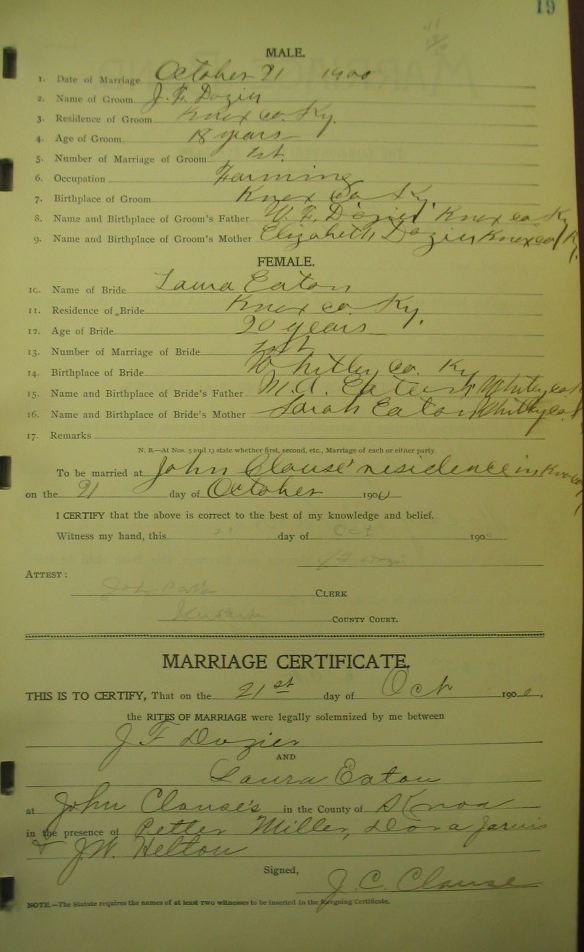 19
MALE.
1. Date of Marriage October 21 1900
2. Name of Groom J. F. Dozier
3. Residence of Groom Knox co. Ky.
4. Age of Groom 18 years
5. Number of Marriage of Groom 1st
6. Occupation Farming
7. Birthplace of Groom Knox Co Ky.
8. Name and Birthplace of Groom's Father W. F. Dozier Knox co Ky
9. Name and Birthplace of Groom's Mother Elizabeth Dozier Knox co Ky.
FEMALE.
10. Name of Bride Laura Eaton
11. Residence of Bride Knox co. Ky.
12. Age of Bride 20 years
13. Number of Marriage of Bride 1st
14. Birthplace of Bride Whitley co. Ky
15. Name and Birthplace of Bride's Father Eaton
16. Name and Birthplace of Bride's Mother Sarah Eaton Whitley co
17. Remarks
N. B.—At Nos. 5 and 13 state whether first, second, etc., Marriage of each or either party
To be married at John Clouse' residence in Knox co
on the 21 day of October 1900
I CERTIFY that the above is correct to the best of my knowledge and belief.
Witness my hand, this day of Oct 190
J F Dozier
ATTEST:
CLERK
COUNTY COURT.
MARRIAGE CERTIFICATE.
THIS IS TO CERTIFY, That on the 21st day of Oct 1900.
the RITES OF MARRIAGE were legally solemnized by me between
J F Dozier
AND
Laura Eaton
at John Clouse's in the County of Knox
in the presence of Petter Miller, Dora Jarvis
& J. W. Helton
Signed,
J. C. Clouse
NOTE.—The Statute requires the names of at least two witnesses to be inserted in the foregoing Certificate.